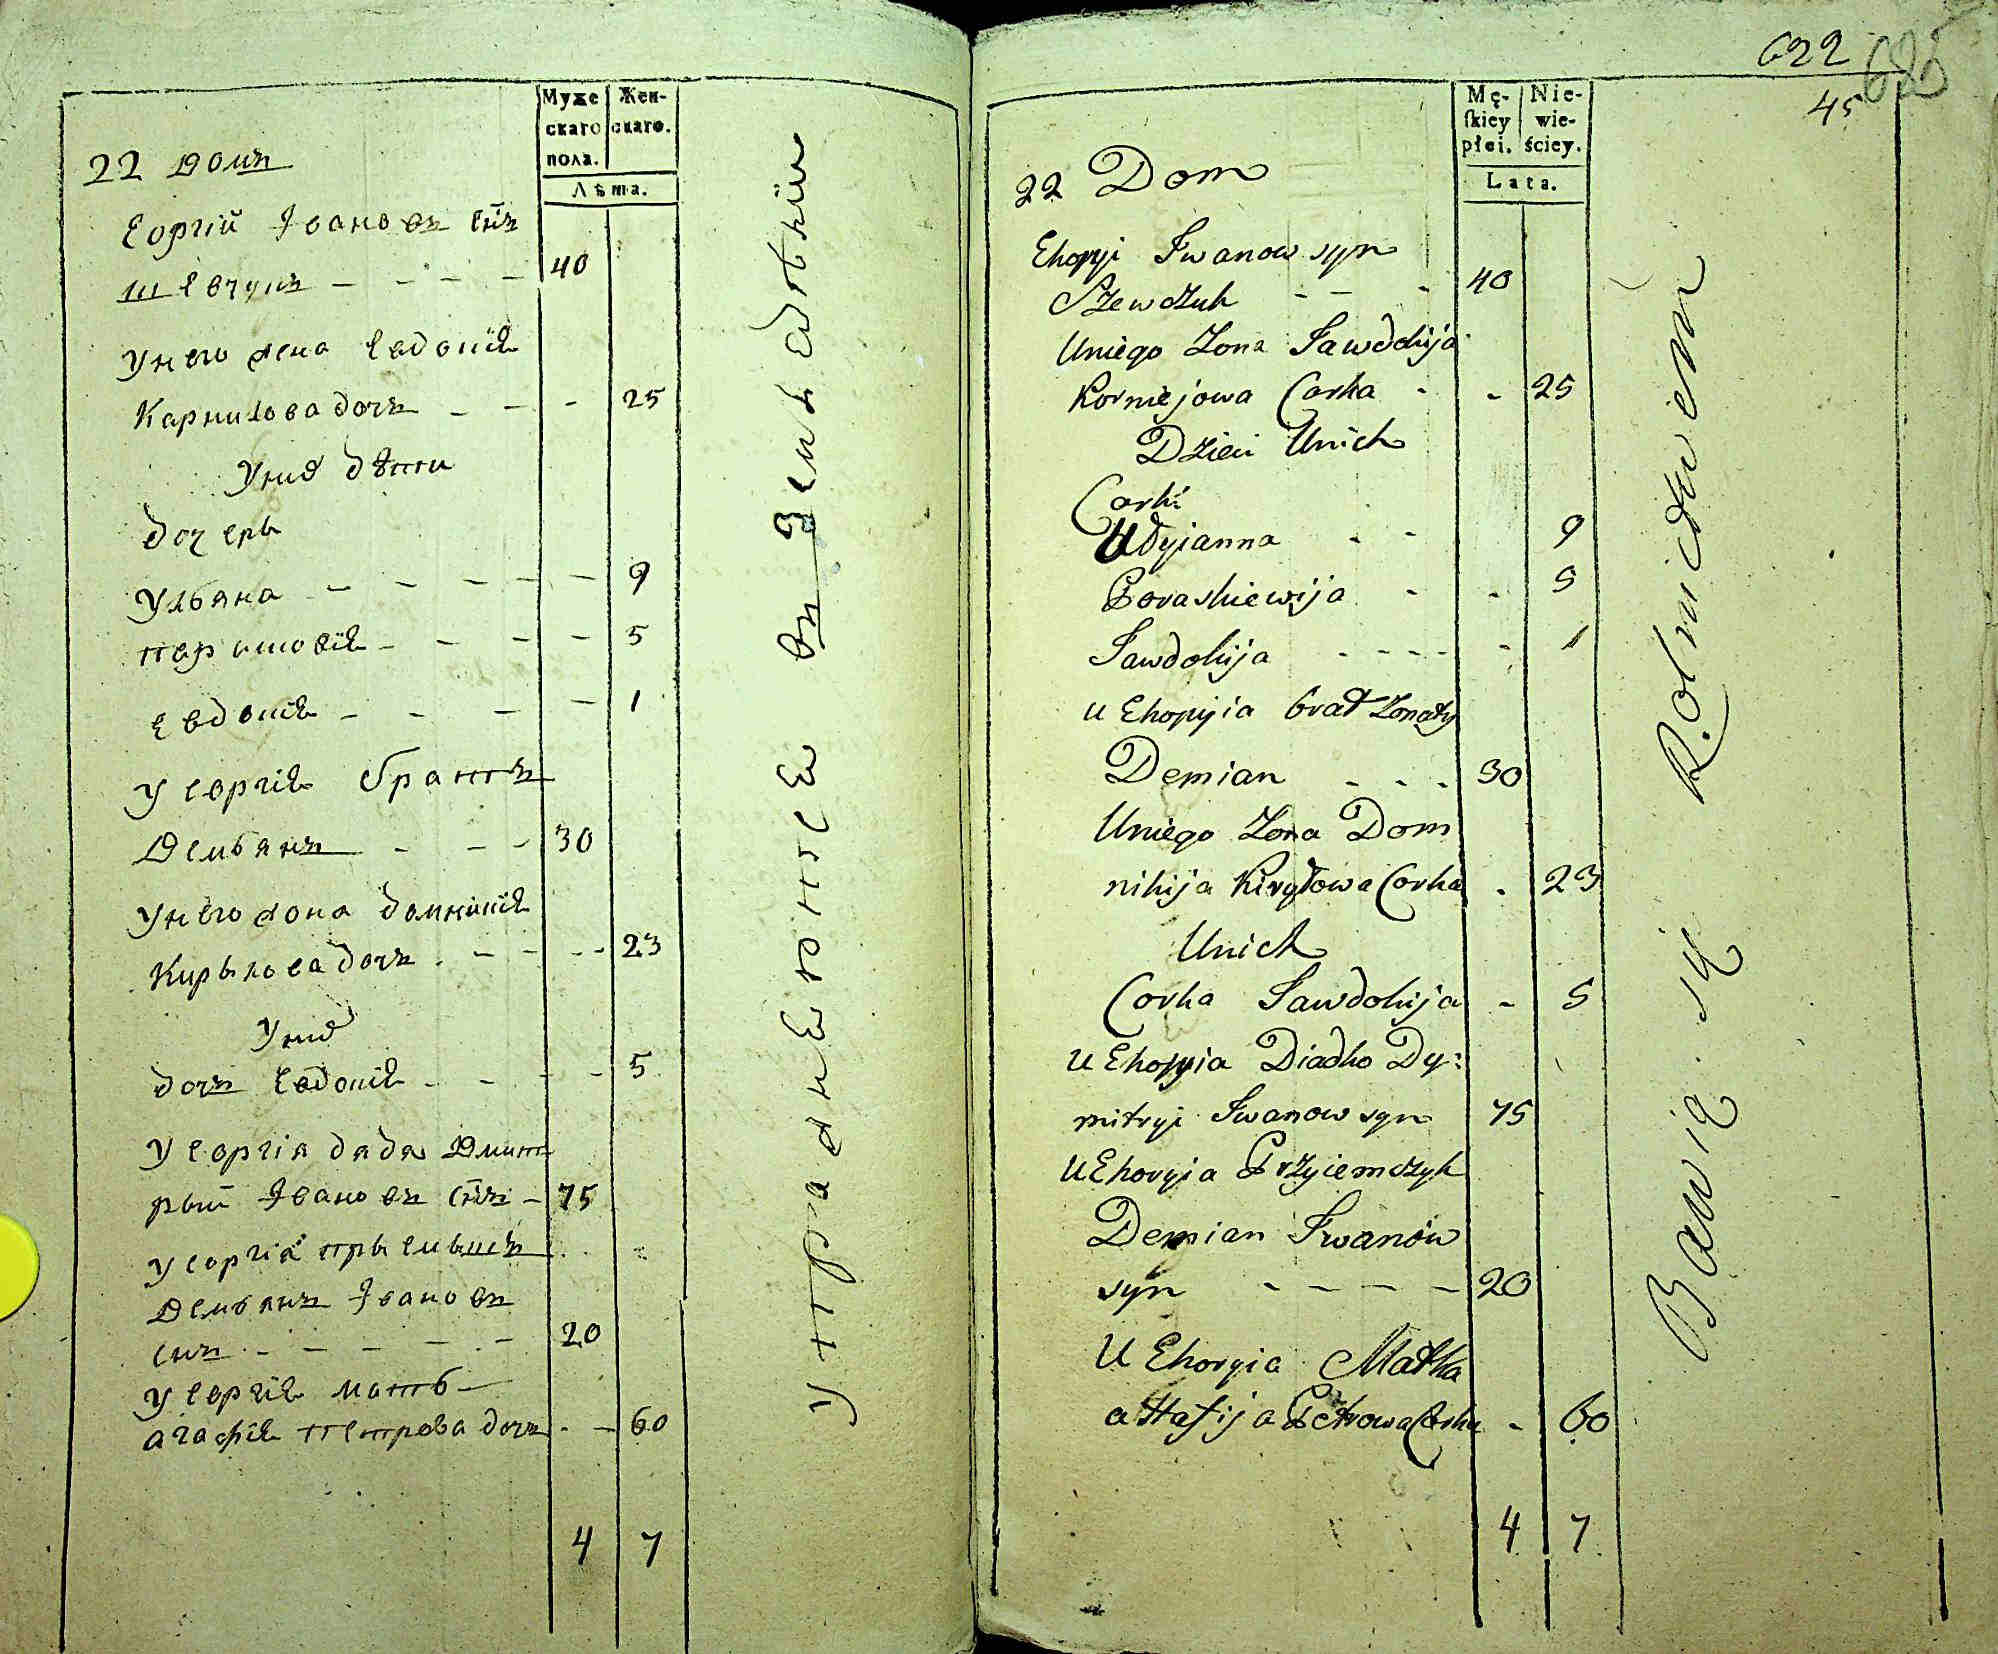 Муже
скаго
пола.
Жен-
скаго.
Лѣта.
22 домъ
Еоргій Івановъ снъ
Шевчукъ - - - - 40
Унего жена Евдокія
Карнилова дочъ - - - 25
Уних дѣти
дочеры
Ульяна - - - - - 9
парасковія - - - - 5
Евдокія - - - - 1
У Еоргія братъ
Демьянъ - - - 30
Унего жона домникія
Кирылова дочъ - - - - - 23
Уних
дочъ Евдокія - - - - 5
У Еоргія дядя Дмит
рый Івановъ снъ - 75
У Еоргія прыемышъ
Демьянъ Івановъ
снъ - - - - - - 20
У Еоргія мать
агафія Петрова дочъ - - 60
4 7
Упражнение въ Земледѣлии
622
45
685
Mę-
skiey
płci.
Nie-
wie-
ściey.
Lata.
22 Dom
Ehoryi Iwanow syn
Szewczuk - - - 40
Uniego Zona Jawdokija
Korniejowa Corka - - 25
Dzieci Unich
Corki
Udyianna - - 9
Poraskiewija - - 5
Jawdokija - - - - - 1
u Ehoryia brat Zonaty
Demian - - - 30
Uniego Zona Dom
nikija Kiryłowa Corka - 23
Unich
Corka Jawdokija - 5
U Ehoryia Diadko Dy:
mitryi Iwanow syn 75
U Ehoryia Przyiemczyk
Demian Iwanow
syn - - - - - 20
U Ehoryia Matka
aHafija Petrowa Corka - 60
4 7
Bawią się Rolnictwem